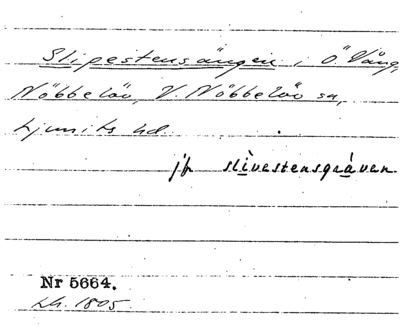 Slipestensängen, i Ö Vång,
Nöbbelöv, V. Nöbbelöv sn,
Ljunits hd.
jfr slìvestensgràven
Nr 5664.
Lh. 1805